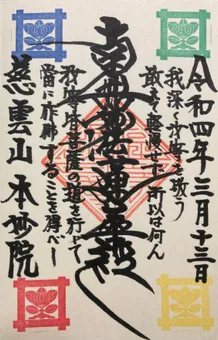 令和四年三月十三日
我深く汝等を敬う
敢て軽慢せず所以は何ん
南無妙法蓮華経
汝等皆菩薩の道を行じて
當に作佛することを得べし
慈雲山 本妙院